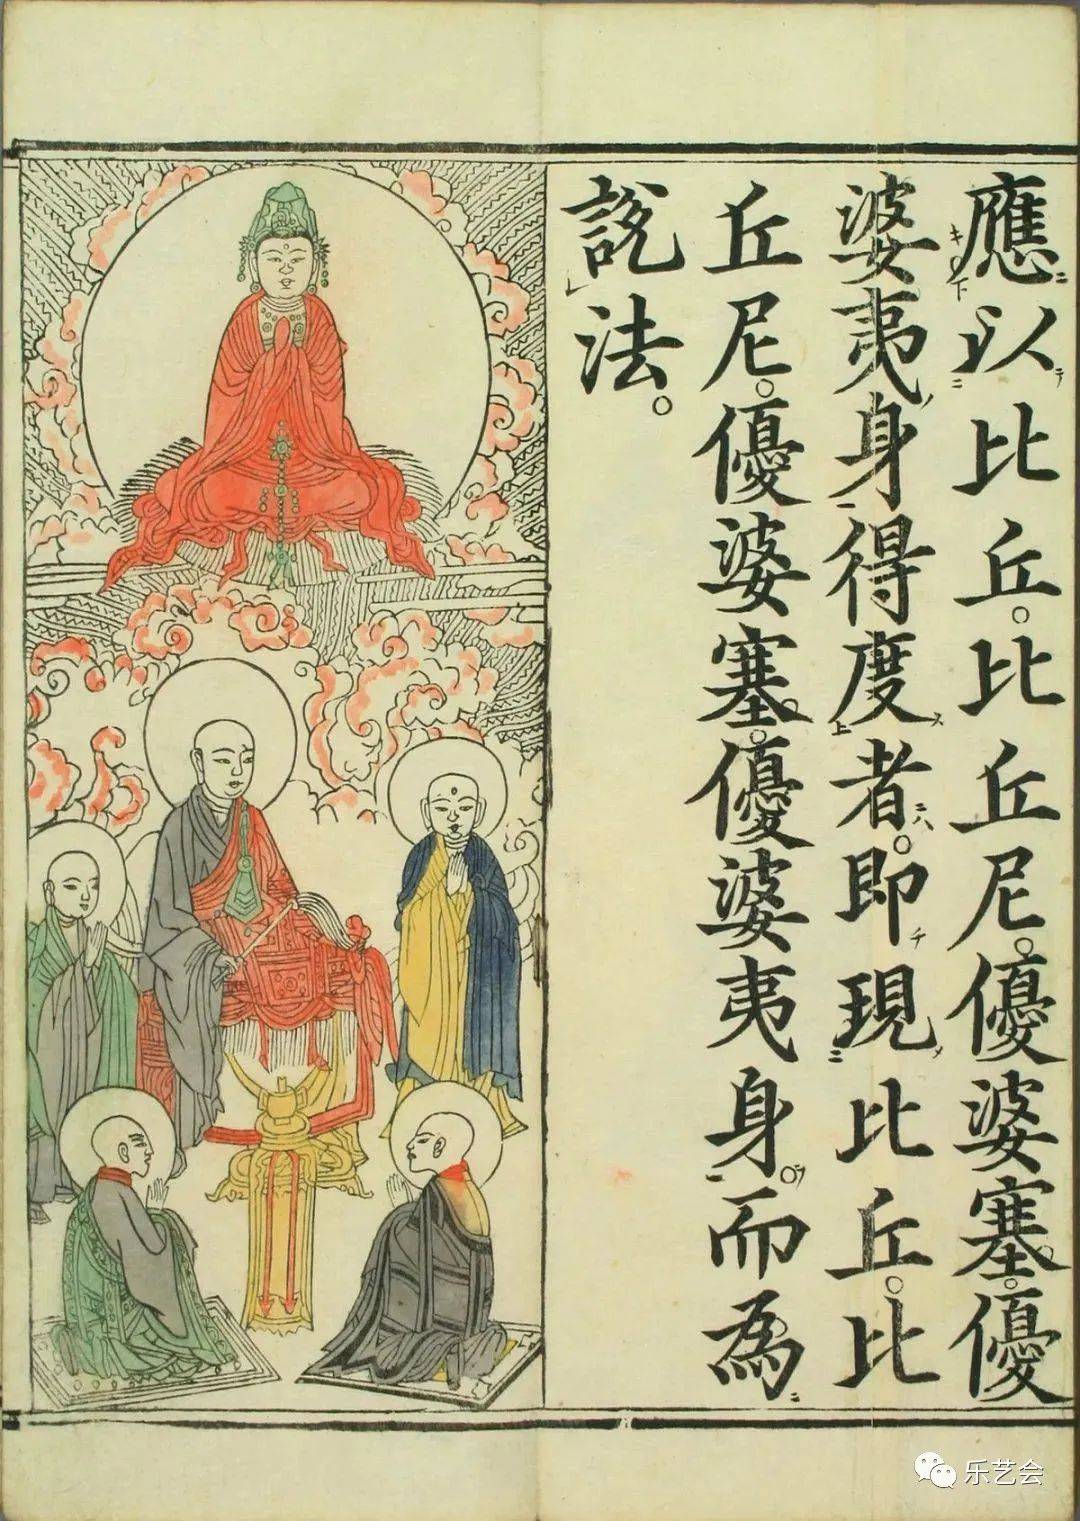 應以比丘。比丘尼。優婆塞。優
婆夷身得度者。即現比丘。比
丘尼。優婆塞。優婆夷身。而為
説法。
乐艺会